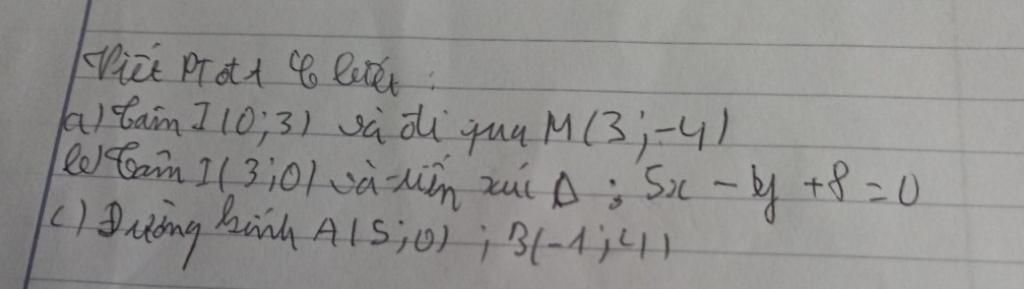 Viết PT đt 𝒞 biết :
a) Tâm I(0;3) và đi qua M(3;-4)
b) Tâm I(3;0) và tiếp xúc Δ : 5x - y + 8 = 0
c) Đường kính A(5;0) ; B(-1;4)